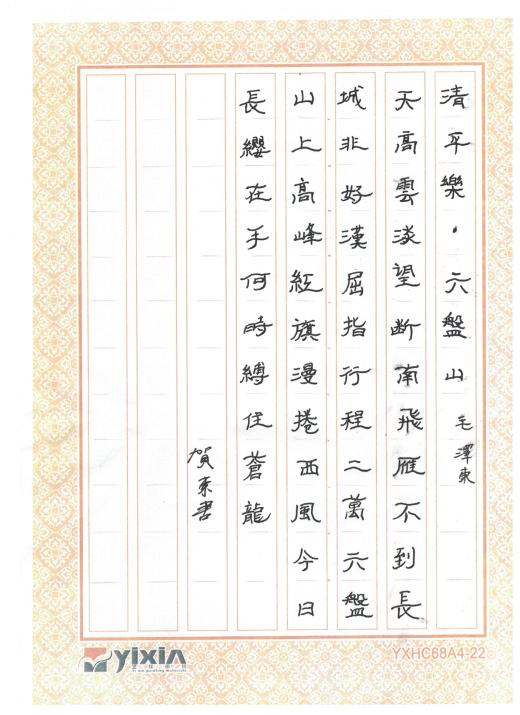 清平樂·六盤山 毛澤東
天高雲淡望断南飛雁不到長
城非好漢屈指行程二萬六盤
山上高峰紅旗漫捲西風今日
長纓在手何時縛住蒼龍
賀東書
YIXIN
YXHC68A4-22